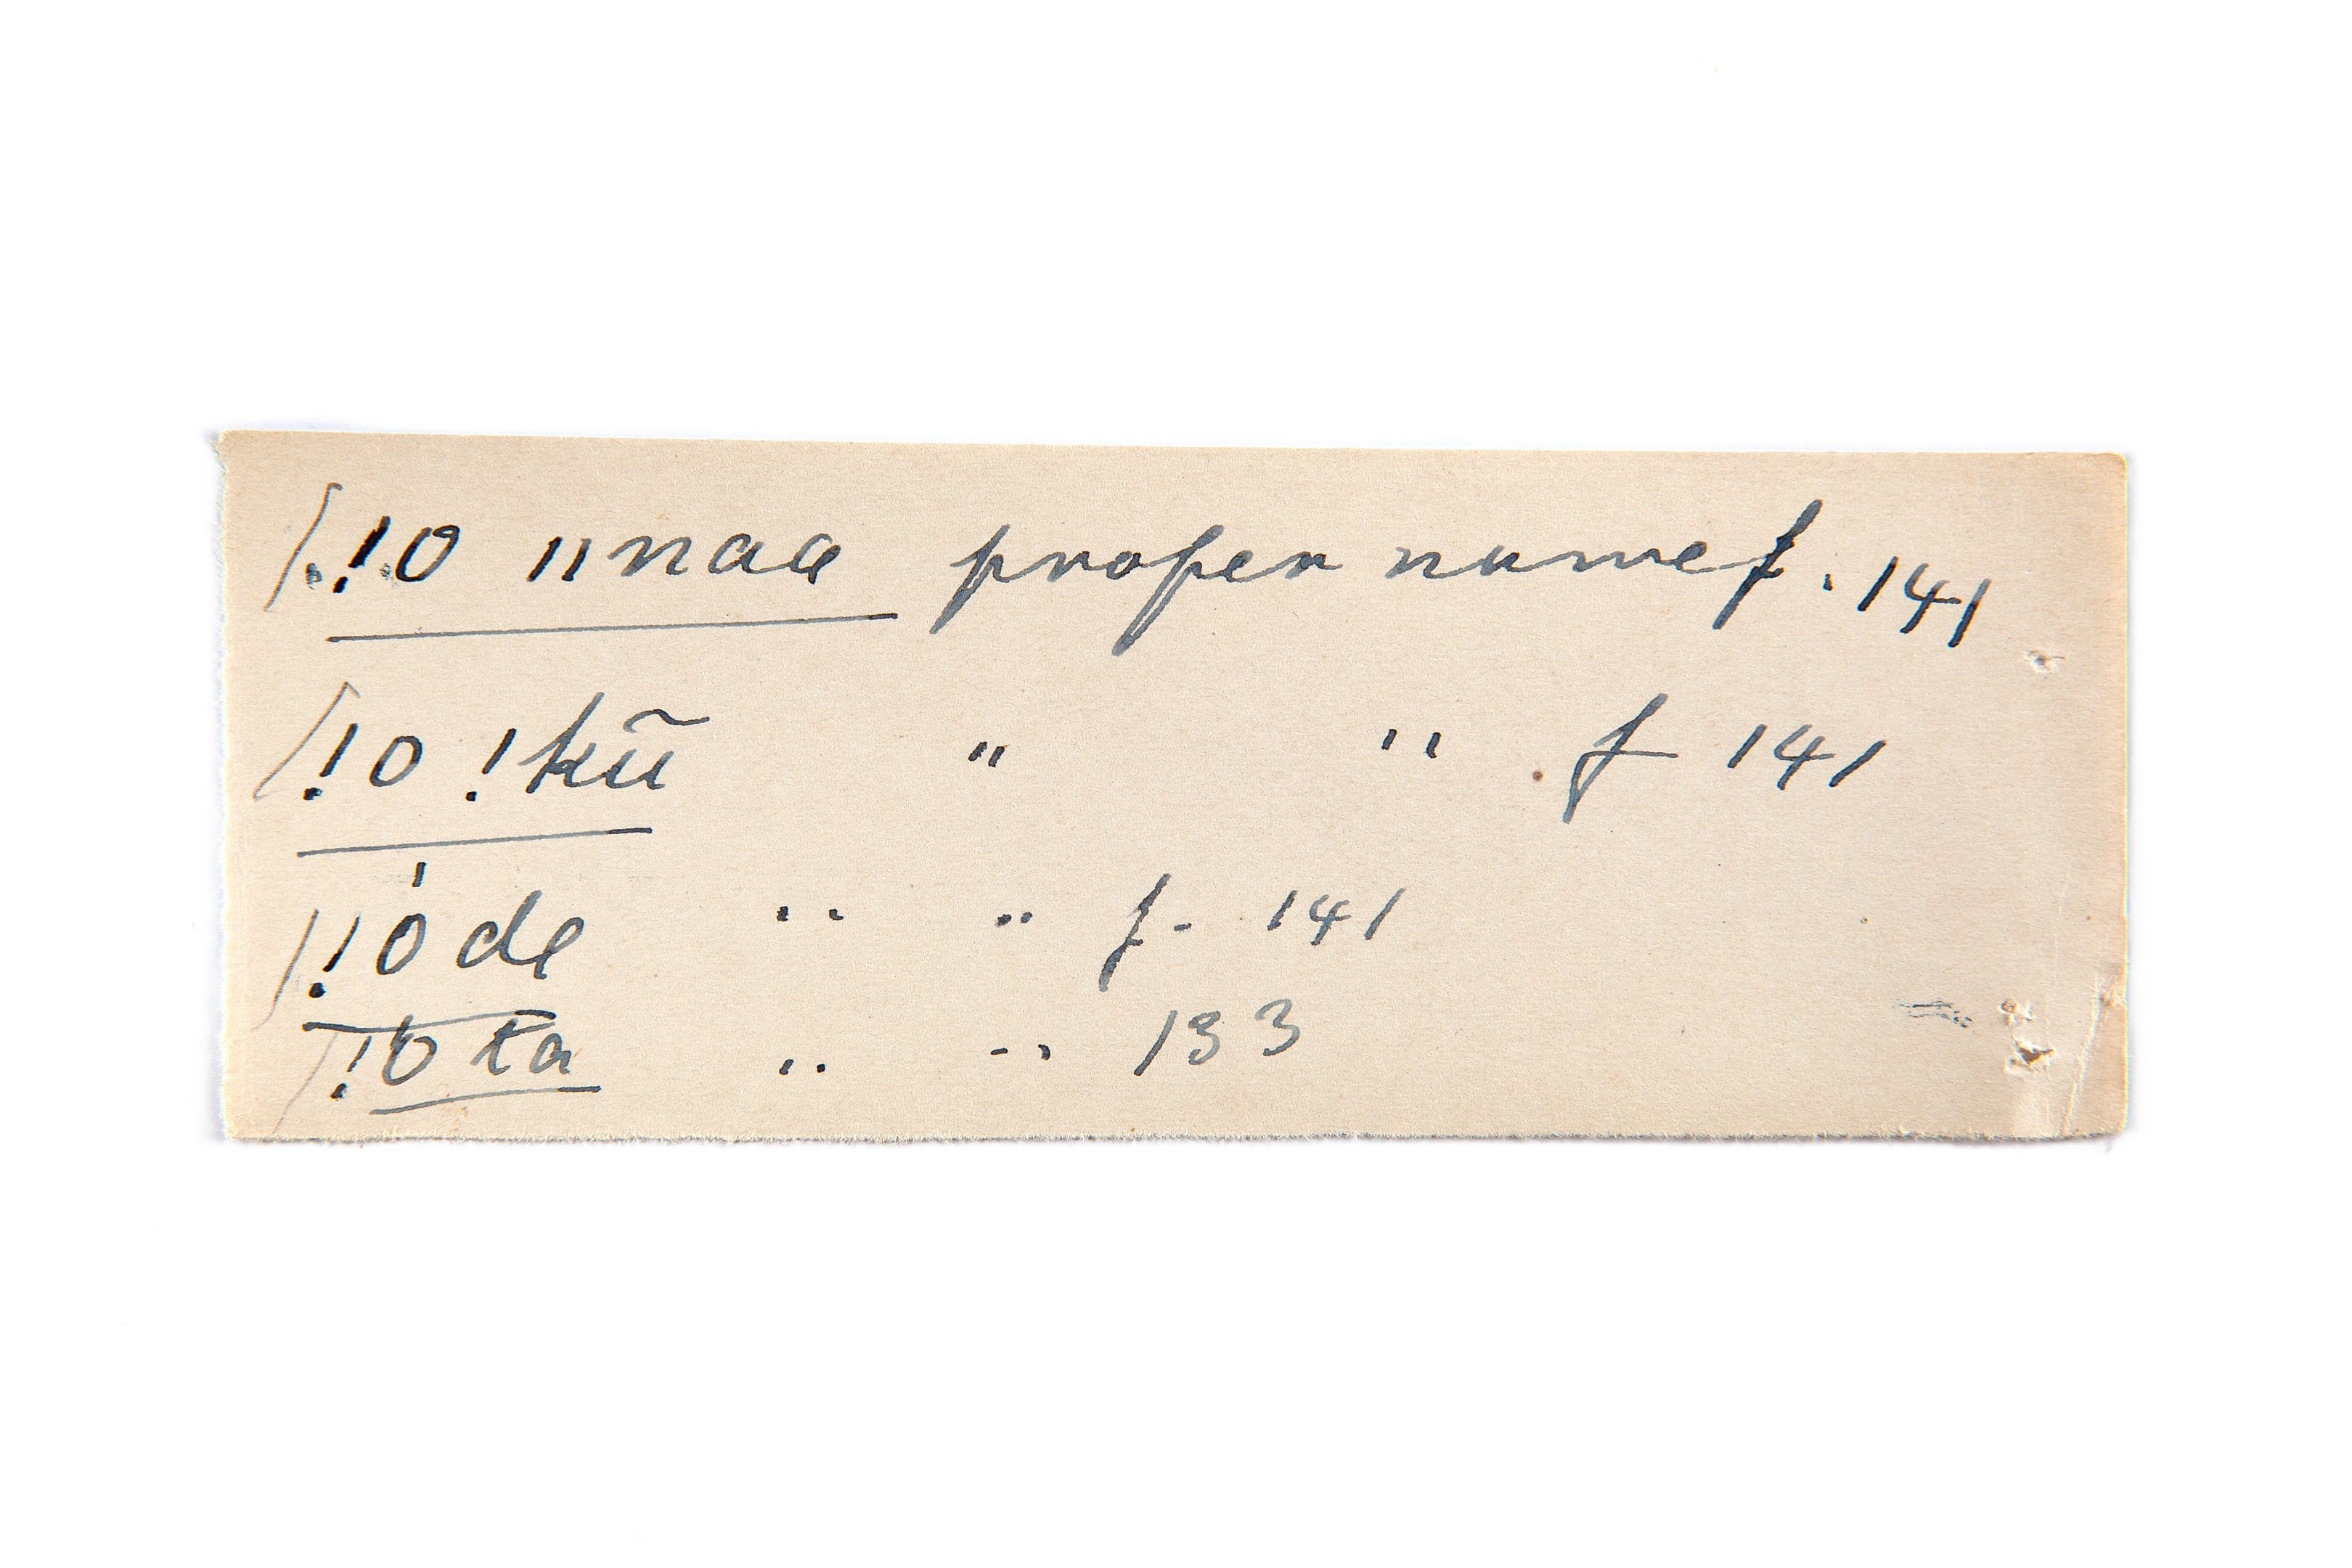 !o ıınaa proper name f. 141
!o !kũ " " f 141
!óde " " f. 141
!o ta " " 133